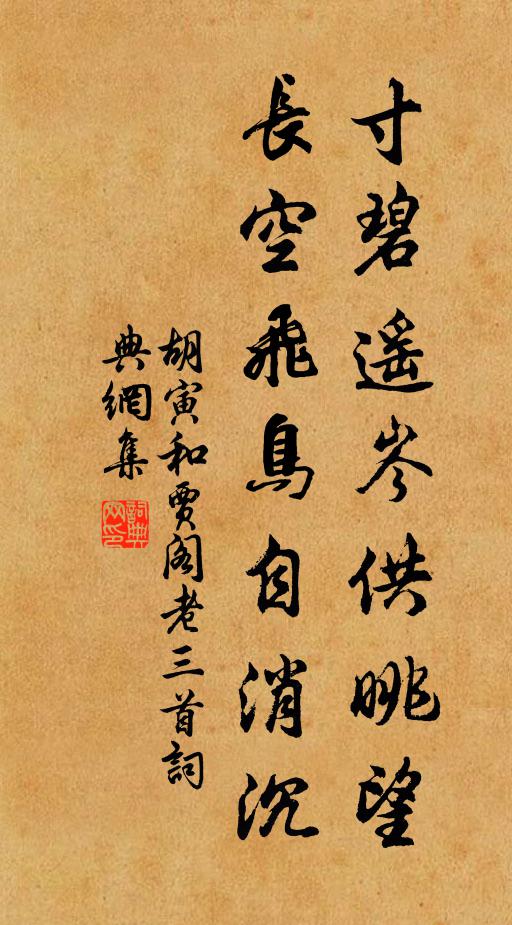 寸碧遙岑供眺望
長空飛鳥自消沉
胡寅和賈閣老三首詞
典網集
詞典
网印